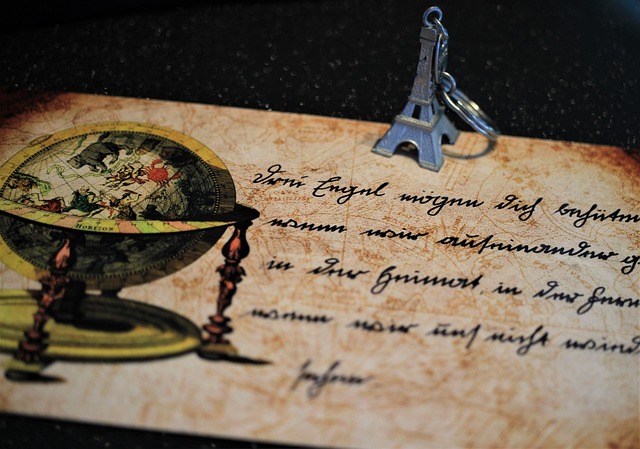 HORIZON
Drei Engel mögen dich behüten
wenn wir auseinander g
in der Heimat, in der Fern
wenn wir uns nicht wied
sehen